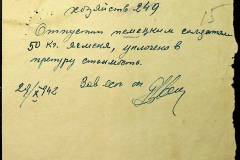 хозяйств-249
15
Отпустил немецким солдатам
50 кг. ячменя, уплочено в
претуру стоимость.
29/X 942 Зав